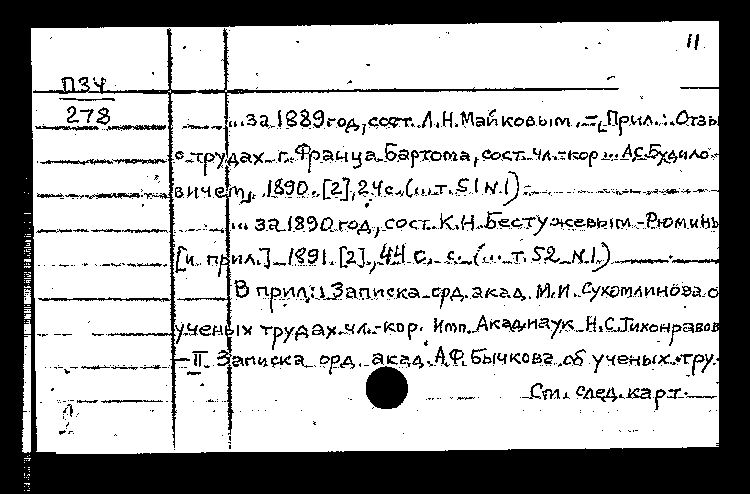 11
ПЗЧ
278
... за 1889 год, сост. Л.Н. Майковым. -, Прил.: Отзы
о трудах г. Франца Бартома, сост. чл.-кор... А.С. Будило-
вичем, 1890. [2], 24 с. (... т. 51 N.1)
... за 1890 год, сост. К.Н. Бестужевым-Рюминым
[и прил.] 1891. [2], 44 с. с. (... т. 52 N.1.)
В прил.: I Записка орд. акад. М.И. Сухомлинова о
ученых трудах чл.-кор. Имп. Акад. наук Н.С. Тихонравов
- II Записка орд. акад. А.Ф. Бычкова об ученых тру-
См. след. карт.
2